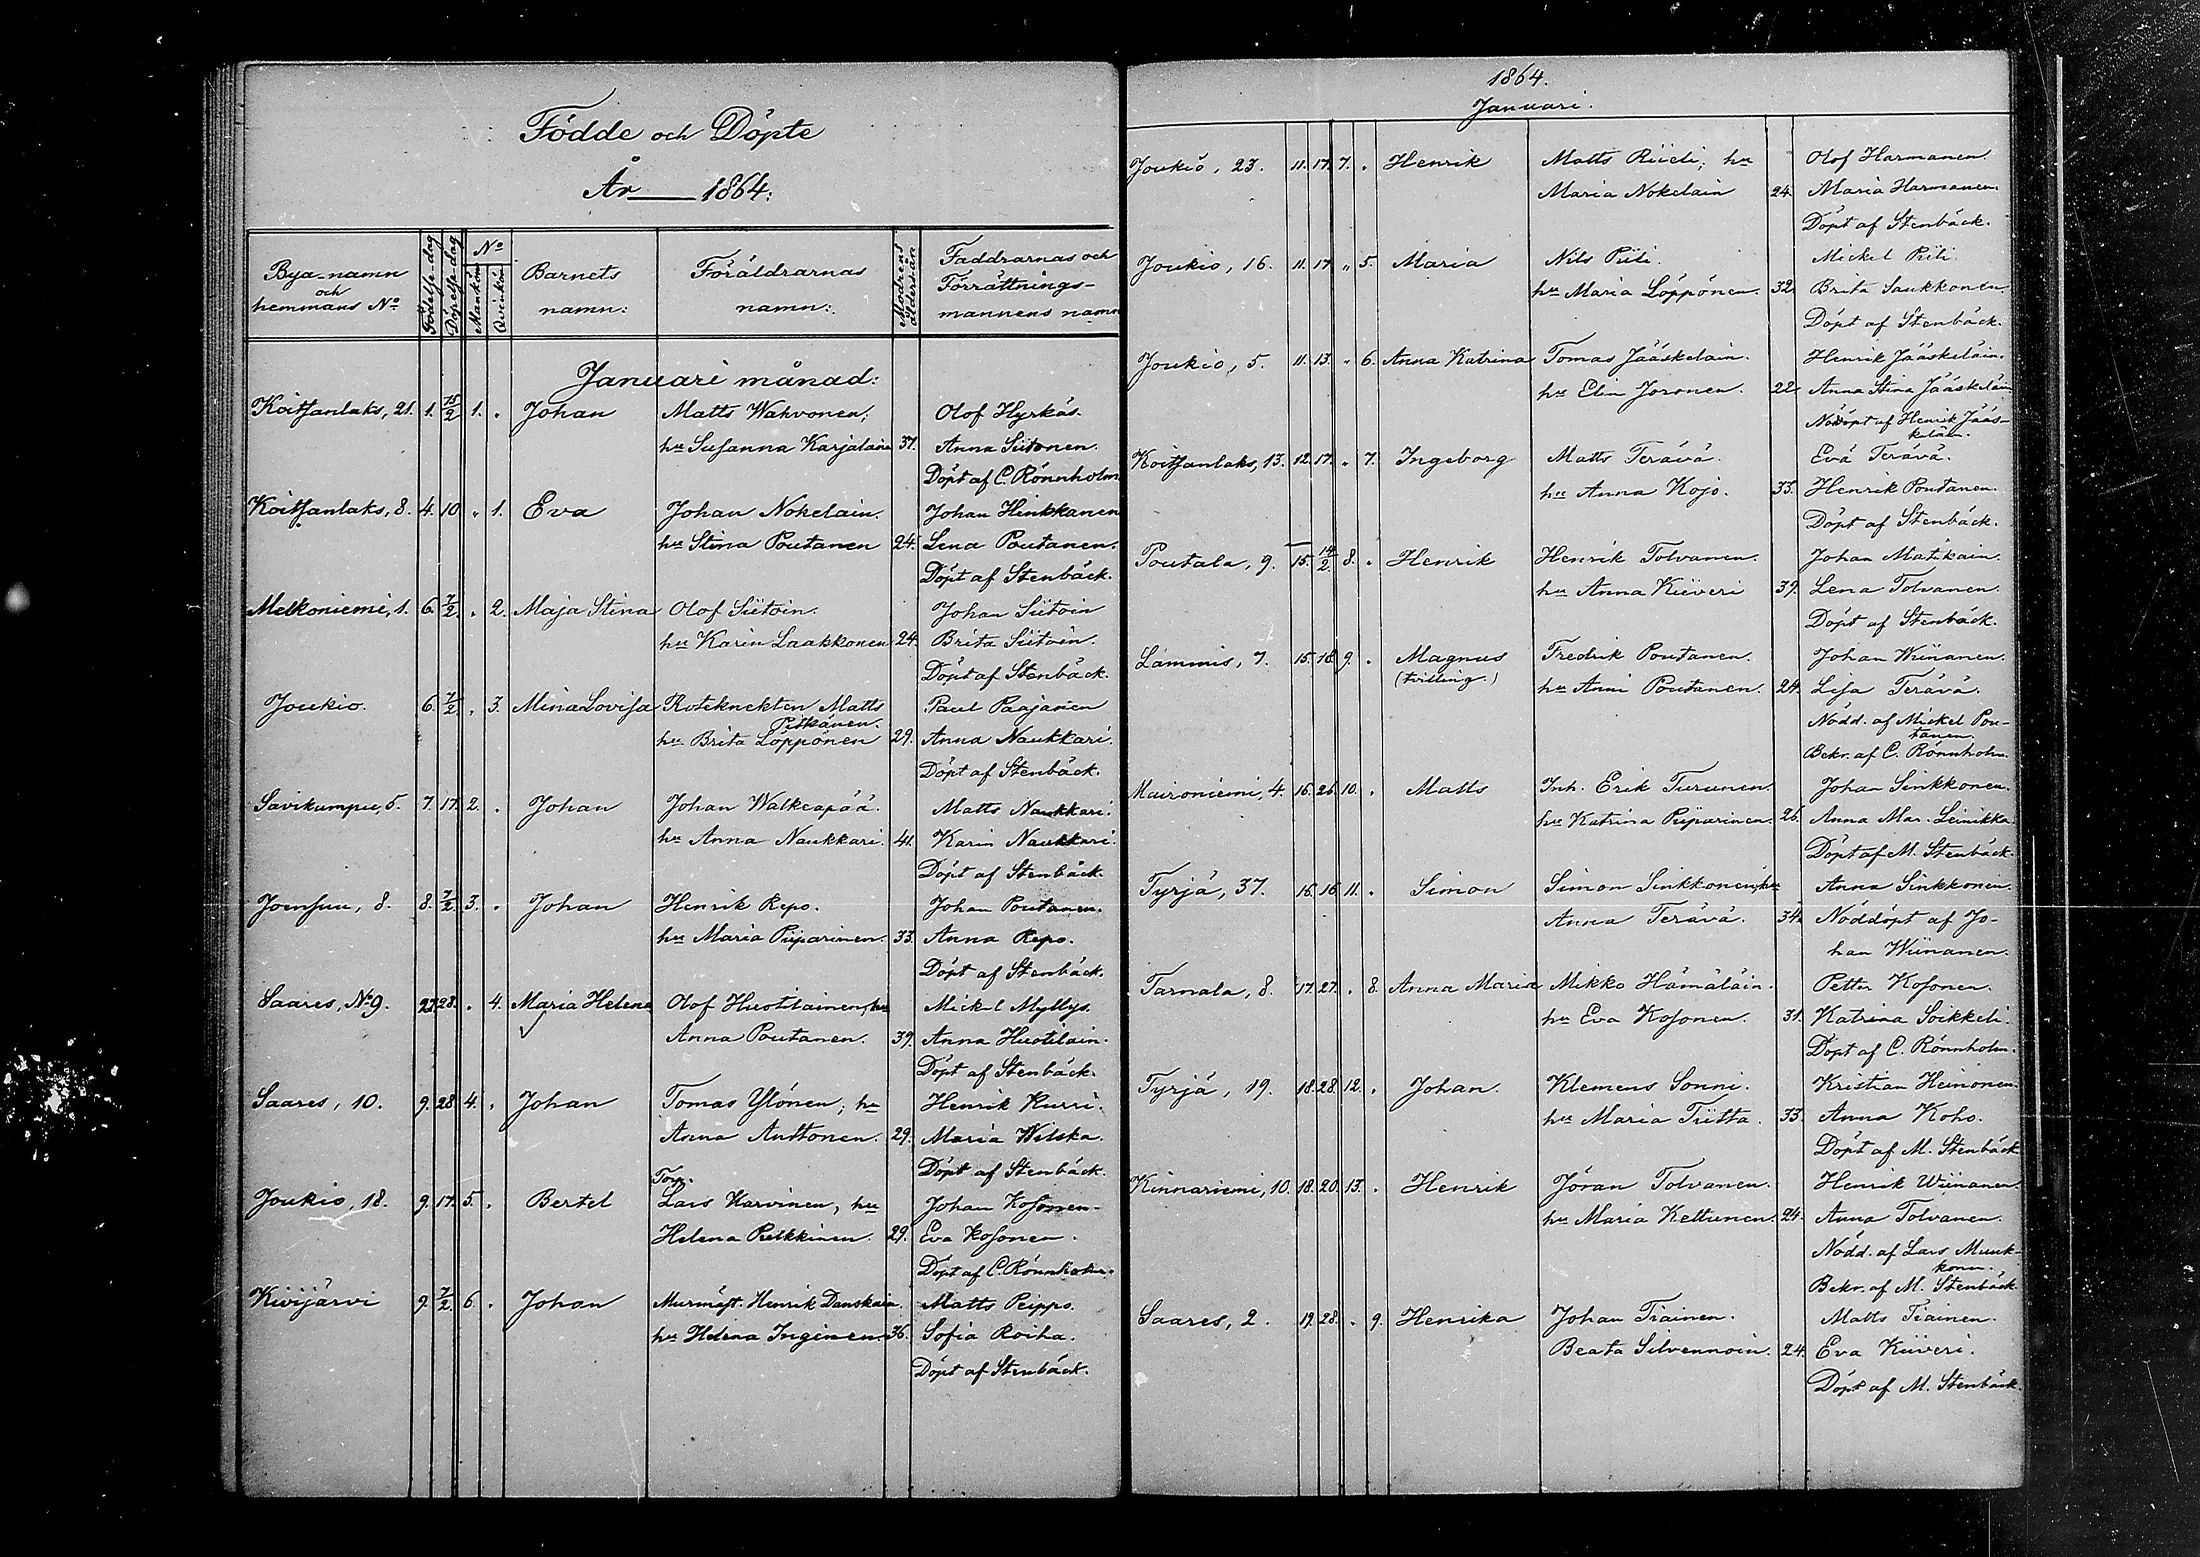 Födde och Döpte
År 1864.
Bya-namn och hemmans No
Födelse dag
Döpelse dag
No
Mankön
Qvinkön
Barnets namn:
Föräldrarnas namn:
Modrens ålder
Faddrarnas och Förrättnings-mannens namn
Januari månad:
Koitsanlaks, 21. 1. 15/2 1. Johan Matts Wahvonen, Olof Hyrkäs.
hu Susanna Karjalain 37. Anna Siitonen.
Döpt af C. Rönnholm
Koitsanlaks, 8. 4. 10 " 1. Eva Johan Nokelain. Johan Hinkkanen
hu Stina Poutanen 24. Lena Poutanen.
Döpt af Stenbäck.
Melkoniemi, 1. 6. 7/2 " 2. Maja Stina Olof Siitoin. Johan Siitoin
hu Karin Laakkonen 24. Brita Siitoin.
Döpt af Stenbäck.
Joukio. 6. 7/2 " 3. Mina Lovisa Roteknekten Matts Paul Paajanen
Pitkänen.
hu Brita Löppönen 29. Anna Naukkari.
Döpt af Stenbäck.
Savikumpu, 5. 7. 17. 2. Johan Johan Walkeapää. Matts Naukkari.
hu Anna Naukkari. 41. Karin Naukkari.
Döpt af Stenbäck.
Joensuu, 8. 8. 7/2 3. Johan Henrik Repo. Johan Poutanen.
hu Maria Piiparinen. 33. Anna Repo.
Döpt af Stenbäck.
Saares, No 9. 28. " 4. Maria Helena Olof Huotilainen, hu Mickel Myllys.
Anna Poutanen. 39. Anna Huotilain.
Döpt af Stenbäck.
Saares, 10. 9. 28 4. Johan Tomas Ylönen, hu Henrik Kurri.
Anna Anttonen. 29. Maria Wilska.
Döpt af Stenbäck.
Torp.
Joukio, 18. 9. 17. 5. Bertel Lars Karvinen, hu Johan Kosonen.
Helena Pulkkinen. 29. Eva Kosonen.
Döpt af C. Rönnholm.
Kivijärvi 9. 7/2 6. Johan Murmäst. Henrik Danskain. Matts Peippo.
hu Helena Inginen. 36. Sofia Roiha.
Döpt af Stenbäck.
1864.
Januari.
Joukio, 23. 11. 17. 7. Henrik Matts Riieli, hu Olof Harmanen.
Maria Nokelain 24. Maria Harmanen.
Döpt af Stenbäck.
Joukio, 16. 11. 17 " 5. Maria Nils Piili. Mickel Piili.
hu Maria Löppönen. 32. Brita Saukkonen.
Döpt af Stenbäck.
Joukio, 5. 11. 13. " 6. Anna Katrina Tomas Jääskelain. Henrik Jääskeläin.
hu Elin Joronen. 22. Anna Stina Jääskeläin
Nöddöpt af Henrik Jääs-
keläin.
Koitsanlaks, 13. 12. 17. " 7. Ingeborg Matts Terävä. Eva Terävä.
hu Anna Kojo. 33. Henrik Poutanen.
Döpt af Stenbäck.
Poutala, 9. 15. 14/2 8. Henrik Henrik Tolvanen. Johan Matikain.
hu Anna Kiiveri 39. Lena Tolvanen.
Döpt af Stenbäck.
Lammis, 7. 15. 18 9. Magnus Fredrik Poutanen. Johan Wiinanen.
(tvilling.)
hu Anni Poutanen. 24. Lisa Terävä.
Nödd. af Mickel Pou-
tanen.
Bekr. af C. Rönnholm.
Maironiemi, 4. 16. 26. 10. Matts Inh. Erik Turunen. Johan Sinkkonen.
hu Katrina Piiparinen. 26. Anna Mar. Leinikka
Döpt af M. Stenbäck.
Tyrjä, 37. 16. 16 11. Simon Simon Sinkkonen, hu Anna Sinkkonen.
Anna Terävä. 34. Nöddöpt af Jo-
han Wiinanen.
Tarnala, 8. 17. 27. " 8. Anna Maria Mikko Hämäläin. Petter Kosonen.
hu Eva Kosonen. 31. Katrina Soikkeli.
Döpt af C. Rönnholm.
Tyrjä, 19. 18. 28. 12. Johan. Klemens Sonni. Kristian Heinonen.
hu Maria Tiitta. 33. Anna Koho.
Döpt af M. Stenbäck
Kinnariemi, 10. 18. 20. 13. Henrik Jöran Tolvanen. Henrik Wiinanen
hu Maria Kettunen. 24. Anna Tolvanen.
Nödd. af Lars Muuk-
konen.
Bekr. af M. Stenbäck
Saares, 2. 19. 28. " 9. Henrika Johan Tiainen. Matts Tiainen.
Beata Silvennoin. 24. Eva Kiiveri.
Döpt af M. Stenbäck.